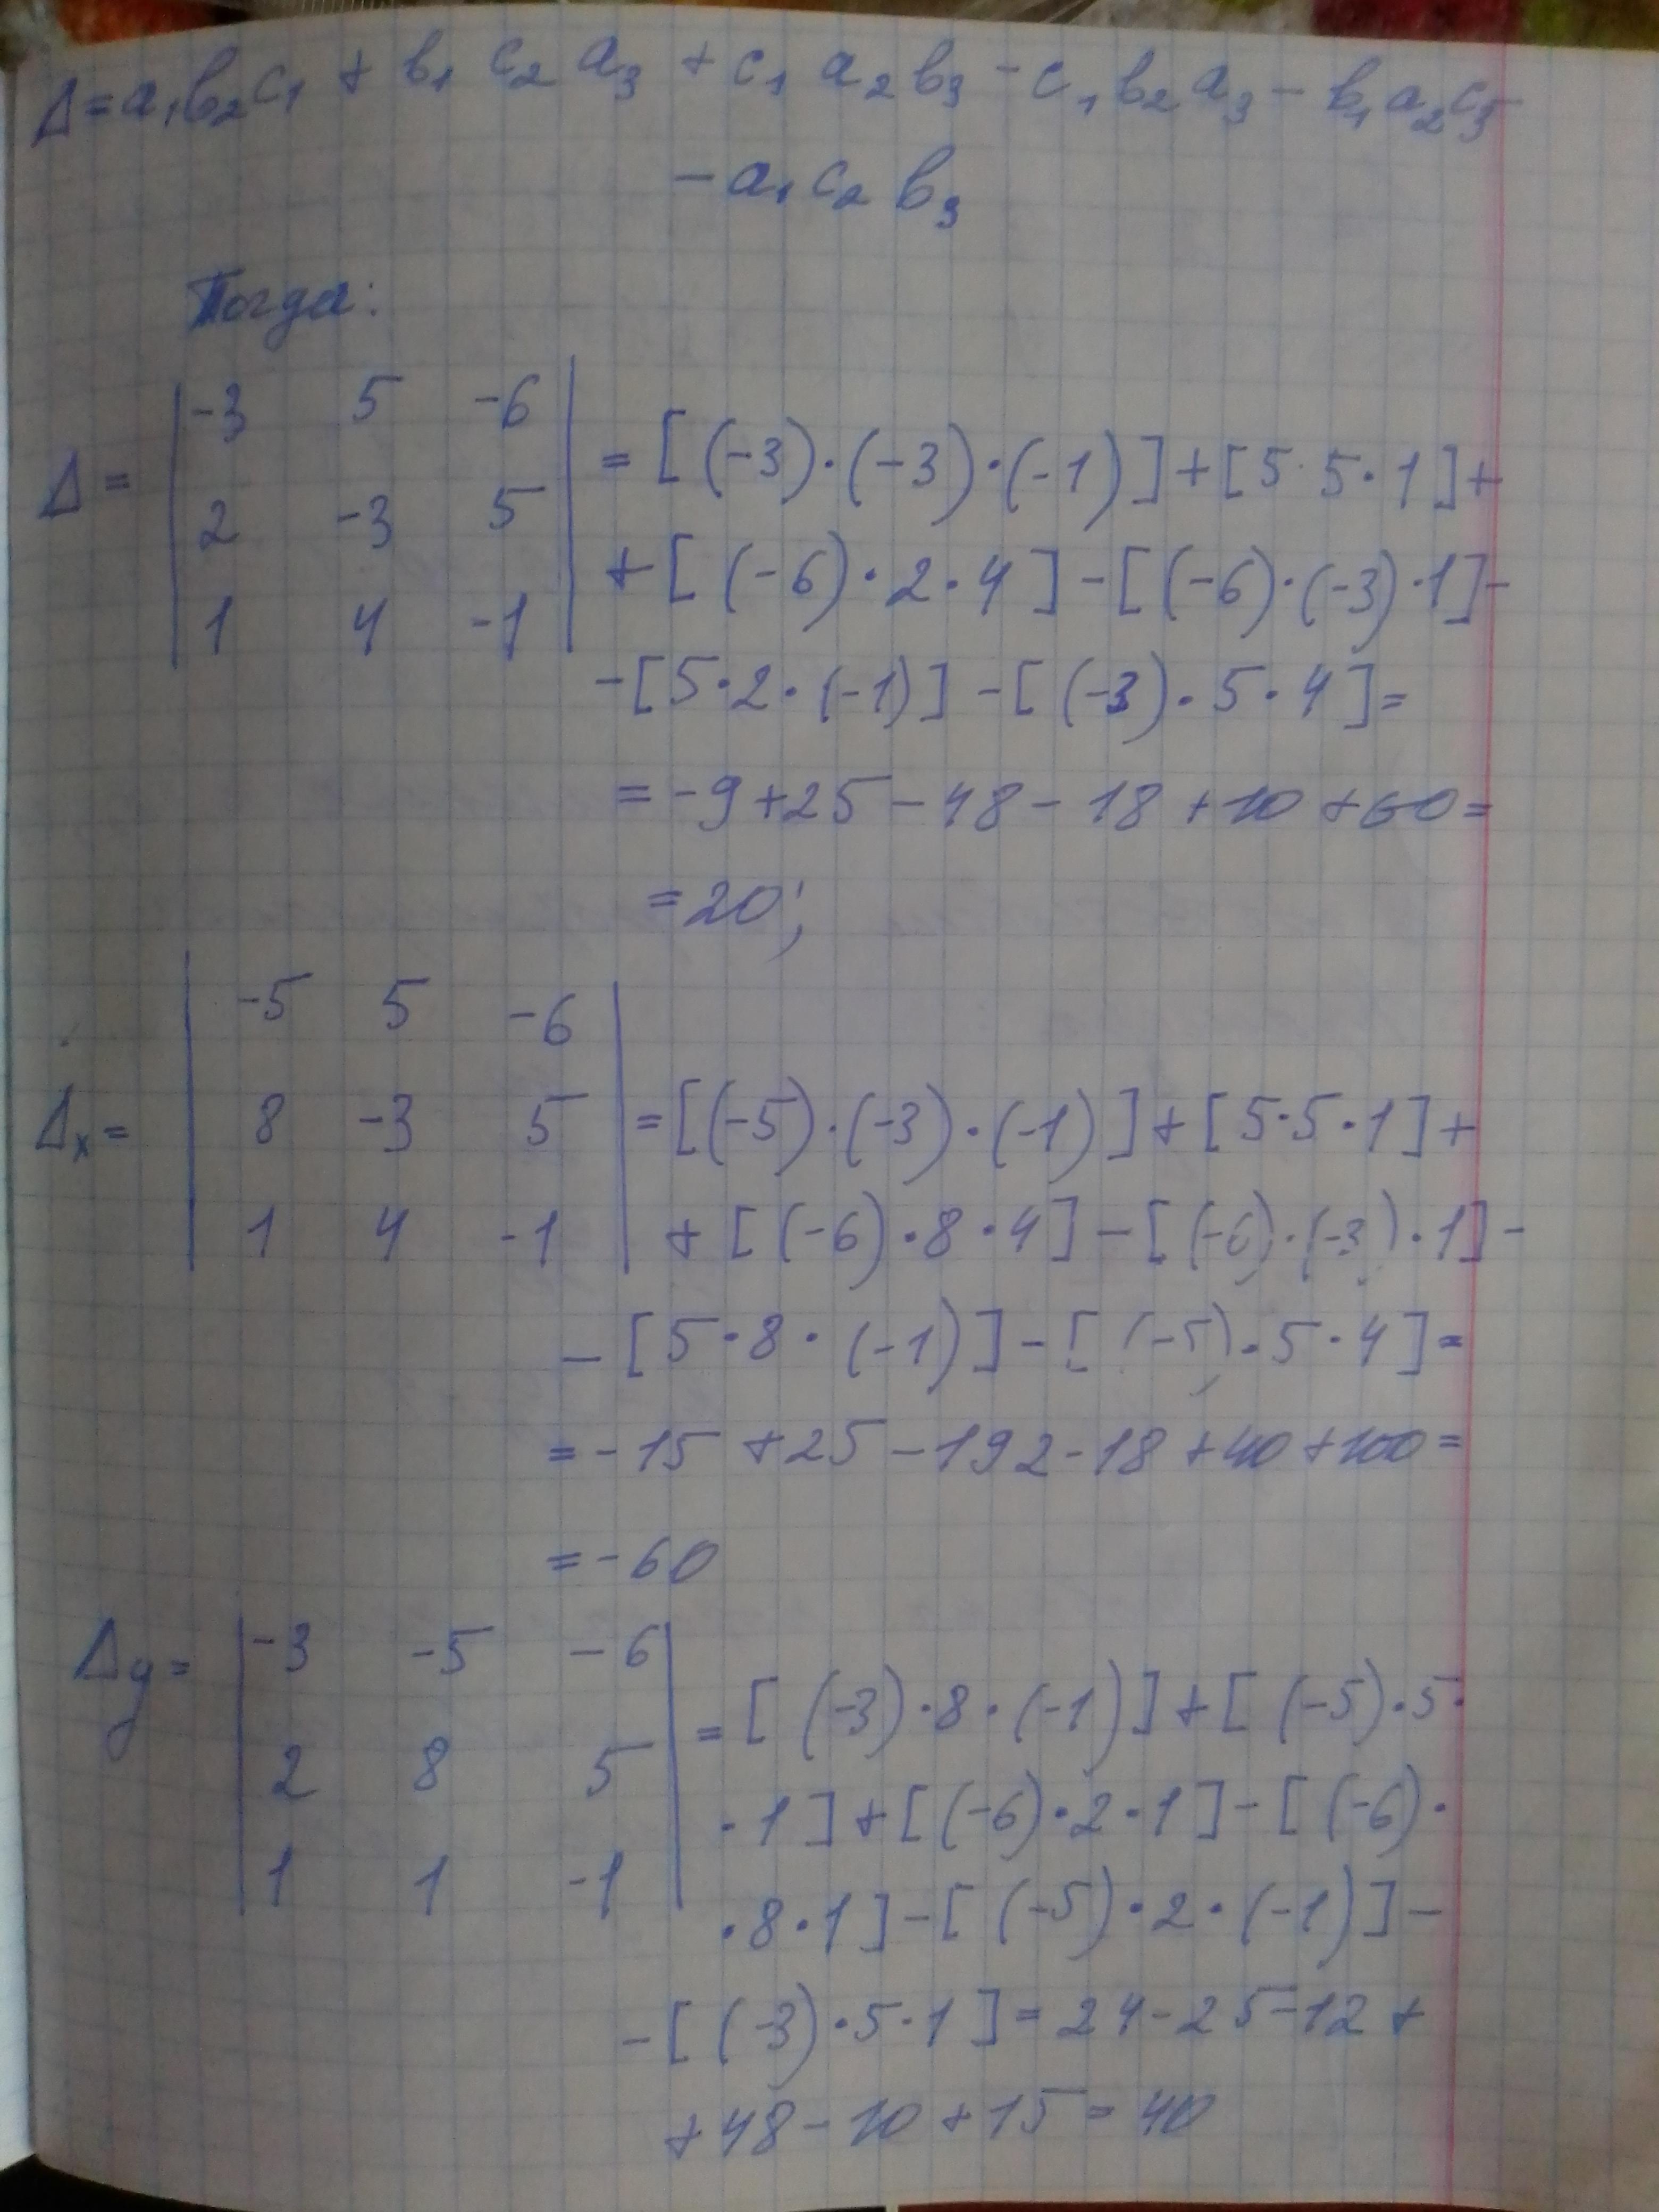 Δ=a₁b₂c₁ + b₁ c₂ a₃ + c₁ a₂ b₃ - c₁ b₂ a₃ - b₁ a₂ c₃ -
- a₁ c₂ b₃
Тогда:
-3 5 -6
Δ = 2 -3 5 = [(-3)·(-3)·(-1)]+[5·5·1]+
1 4 -1 +[(-6)·2·4]-[(-6)·(-3)·1]-
-[5·2·(-1)]-[(-3)·5·4]=
=-9+25-48-18+10+60=
=20;
-5 5 -6
Δₓ= 8 -3 5 =[(-5)·(-3)·(-1)]+[5·5·1]+
1 4 -1 +[(-6)·8·4]-[(-6)·(-3)·1]-
-[5·8·(-1)]-[(-5)·5·4]=
=-15+25-192-18+40+100=
=-60
Δy= -3 -5 -6 =[(-3)·8·(-1)]+[(-5)·5·
2 8 5 ·1]+[(-6)·2·1]-[(-6)·
1 1 -1 ·8·1]-[(-5)·2·(-1)]-
-[(-3)·5·1]=24-25-12+
+48-10+15=40